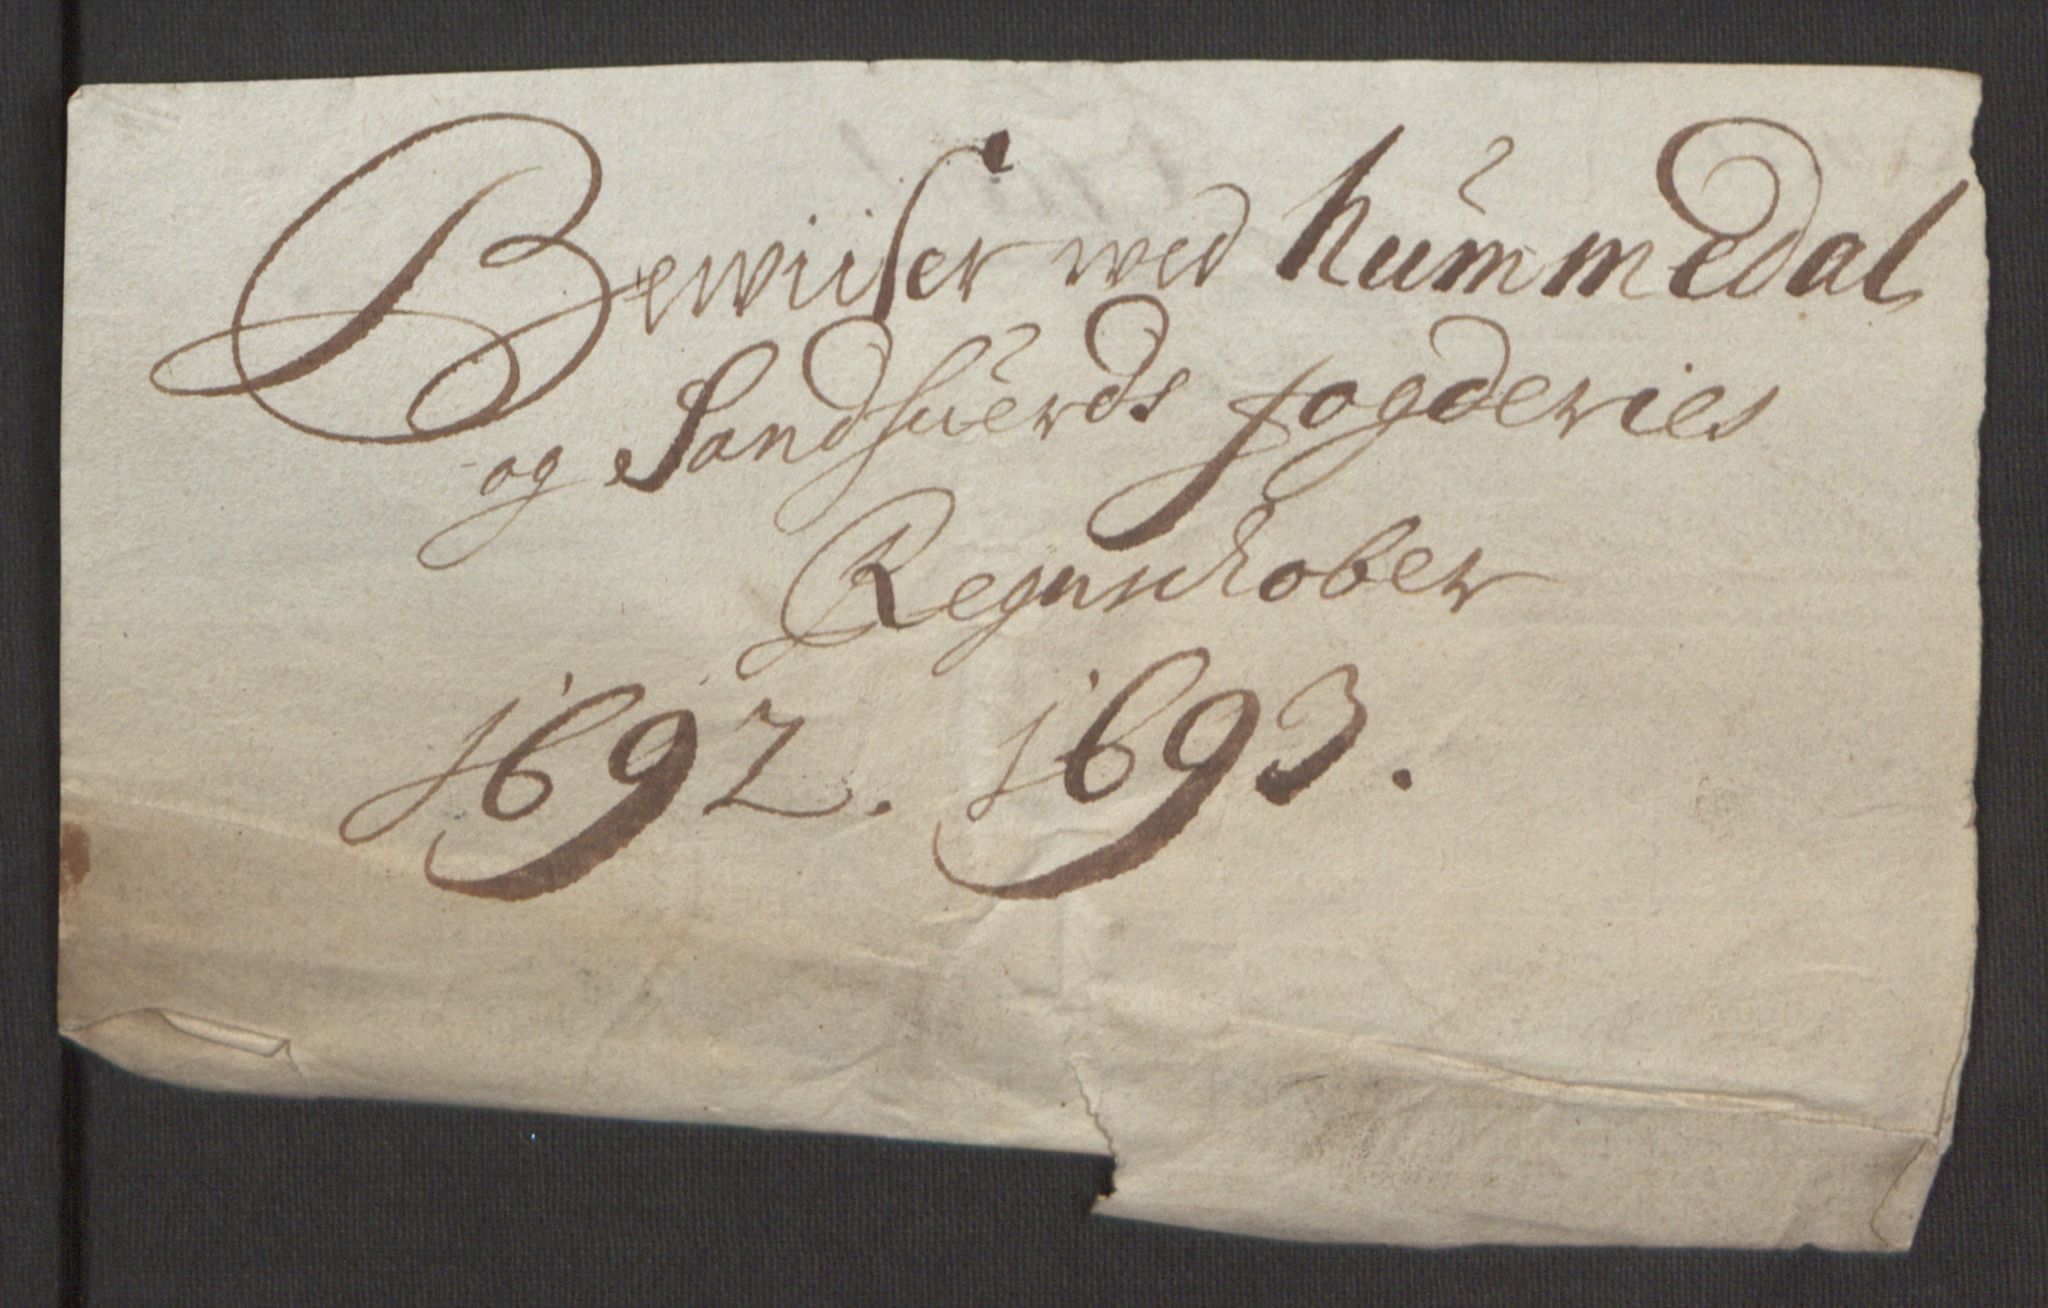 Bewiiser wed Nummedal
og Sandsuerds fogderies
Regnschober
1692. 1693.